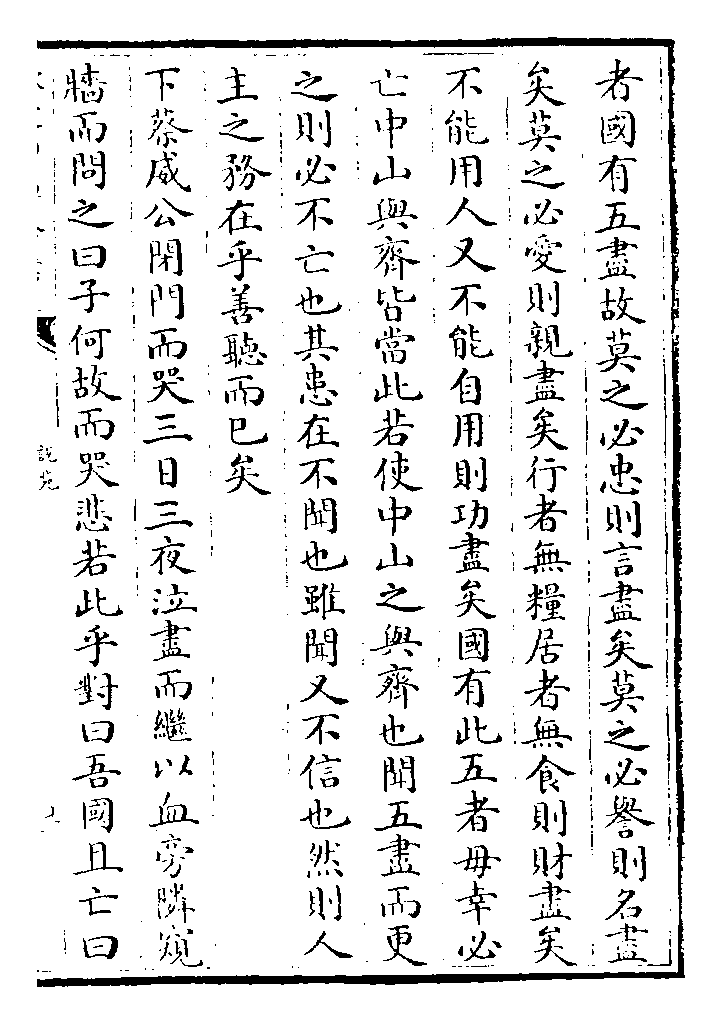 者國有五盡故莫之必忠則言盡矣莫之必譽則名盡
矣莫之必愛則親盡矣行者無糧居者無食則財盡矣
不能用人又不能自用則功盡矣國有此五者毋幸必
亡中山與齊皆當此若使中山之與齊也聞五盡而更
之則必不亡也其患在不聞也雖聞又不信也然則人
主之務在乎善聽而已矣
下蔡威公閉門而哭三日三夜泣盡而繼以血旁隣窺
牆而問之曰子何故而哭悲若此乎對曰吾國且亡曰
說苑